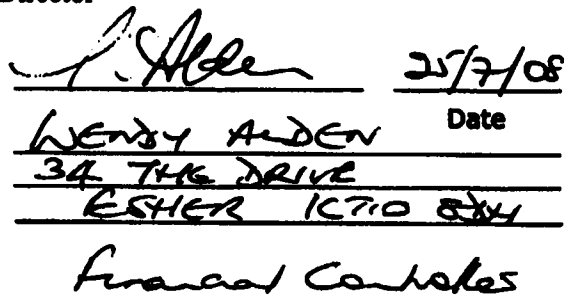 Director
25/7/08
Date
WENDY ALDEN
34 THE DRIVE
ESHER KT10
Financial Controller